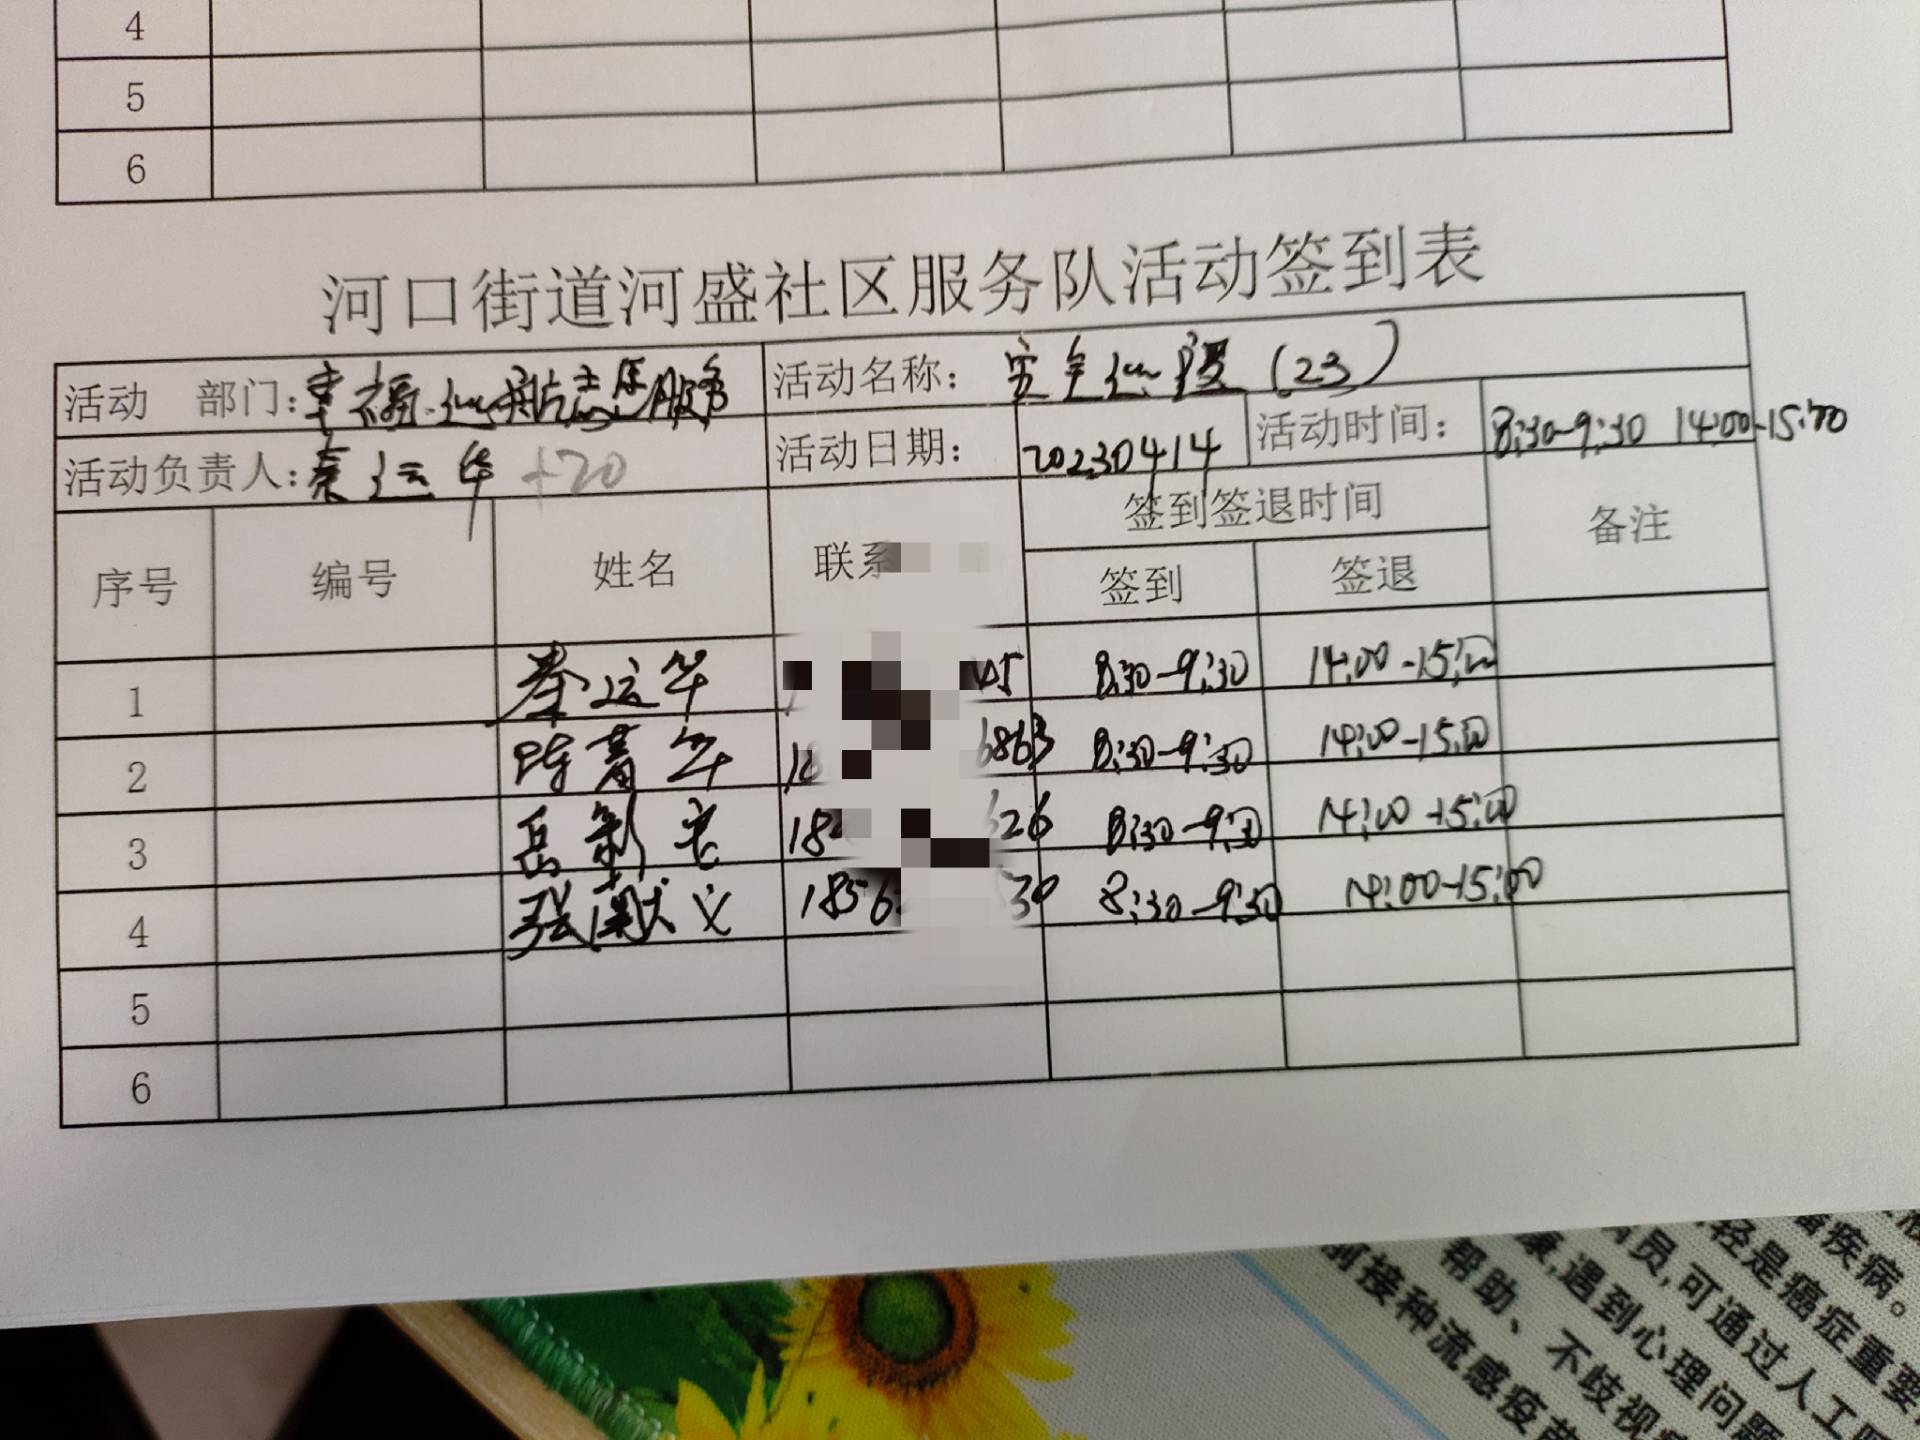 4
5
6
河口街道河盛社区服务队活动签到表
活动 部门：幸福起航志愿服务 活动名称： (23)
活动负责人：秦运华 +20 活动日期： 20230414 活动时间： 8:30-9:30 14:00-15:00
序号 编号 姓名 联系 签到签退时间 备注
签到 签退
1 秦运华 45 8:30-9:30 14:00-15:00
2 陈青年 6863 8:30-9:30 14:00-15:00
3 岳 18 626 8:30-9:30 14:00-15:00
4 张献义 1856 30 8:30-9:30 14:00-15:00
5
6
畜疾病。
轻是癌症重要
员,可通过人工
康,遇到心理问题
帮助、不歧视
前接种流感疫苗